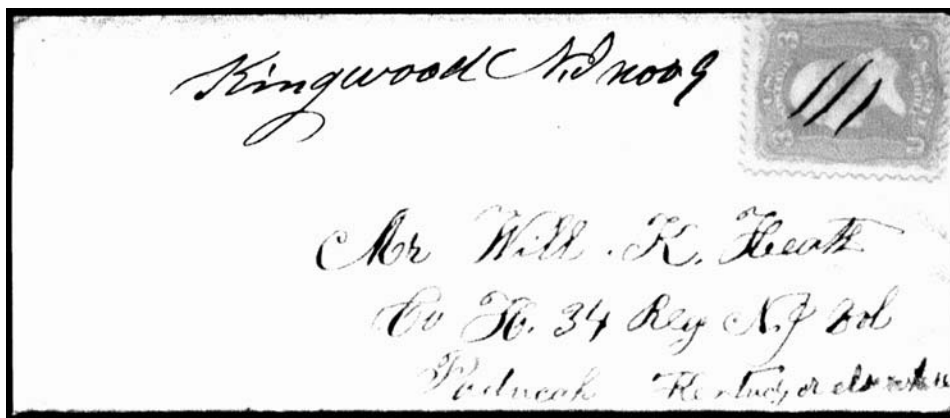 Kingwood N.J nov 9
Mr Will. K. Heath
Co H. 34 Reg N.J Vol
Paducah Kentucy or elsewhere
3 3
U S